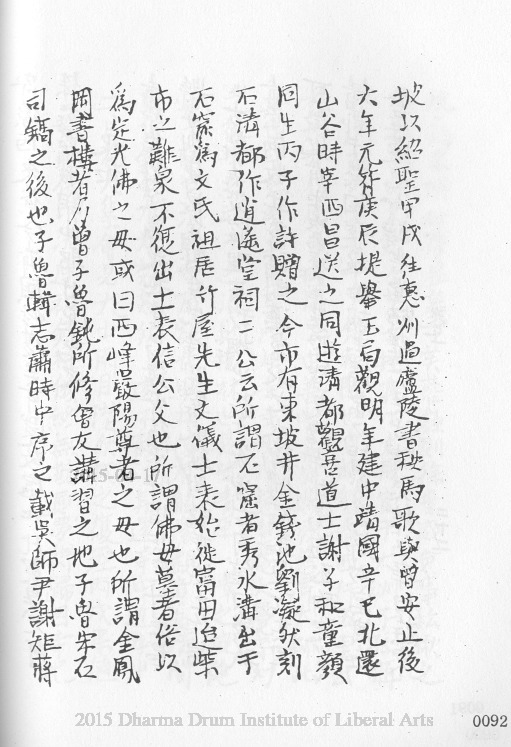 坡以紹聖甲戌往惠州過廬陵書秧馬歌與曾安止後
六年元符庚辰提舉玉局觀明年建中靖國辛巳北還
山谷時宰西昌送之同遊清都觀喜道士謝子和童顏
同生丙子作詩贈之今市有東坡井金錢池劉凝狀刻
石清都作逍遙堂祠二公云所謂石窟者秀水溝出于
石窟為文氏祖居竹屋先生文儀士表始徙富田迨柴
市之難泉不復出士表信公父也所謂佛母墓者俗以
為定光佛之母或曰西峰嚴陽尊者之母也所謂金鳳
岡書樓者乃曾子魯鈍所修會友講習之地子魯宋石
司鎬之後也子魯輯志蕭時中序之載吳師尹謝矩蔣
2015 Dharma Drum Institute of Liberal Arts
0092